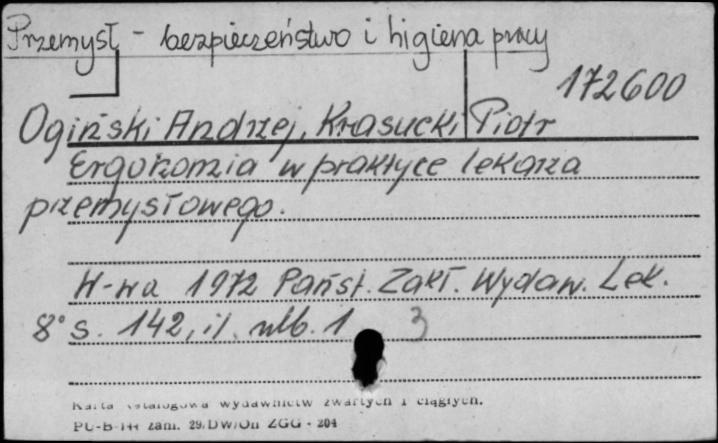 Przemysł - bezpieczeństwo i higiena pracy
172600
Ogiński Andrzej, Krasucki Piotr
Ergonomia w praktyce lekarza
przemysłowego.
W-wa 1972 Państ. Zakł. Wydaw. Lek.
8° s. 142, il. nlb. 1 3
Karta katalogowa wydawnictw zwartych i ciągłych.
PU-B-144 zam. 29/DW/On ZGG - 204